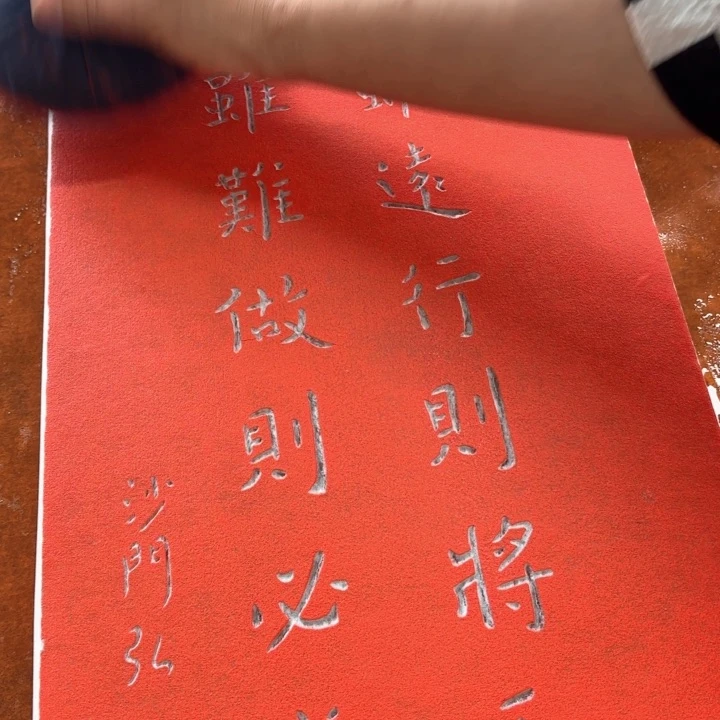 雖遠行則將
雖難做則必
沙門弘